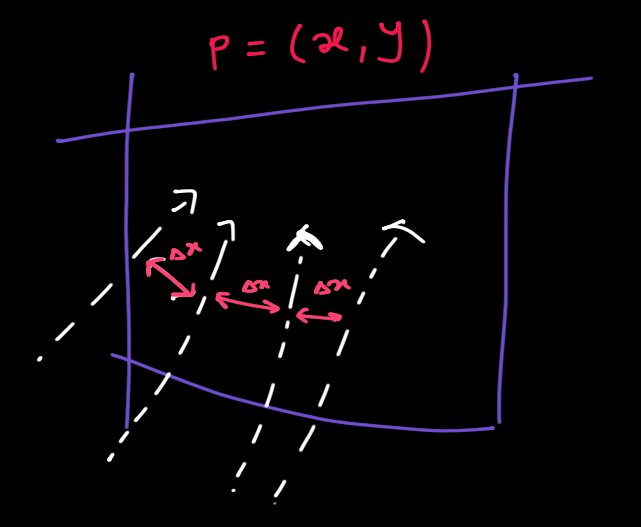 p = (x, y)
Δx
Δx
Δx